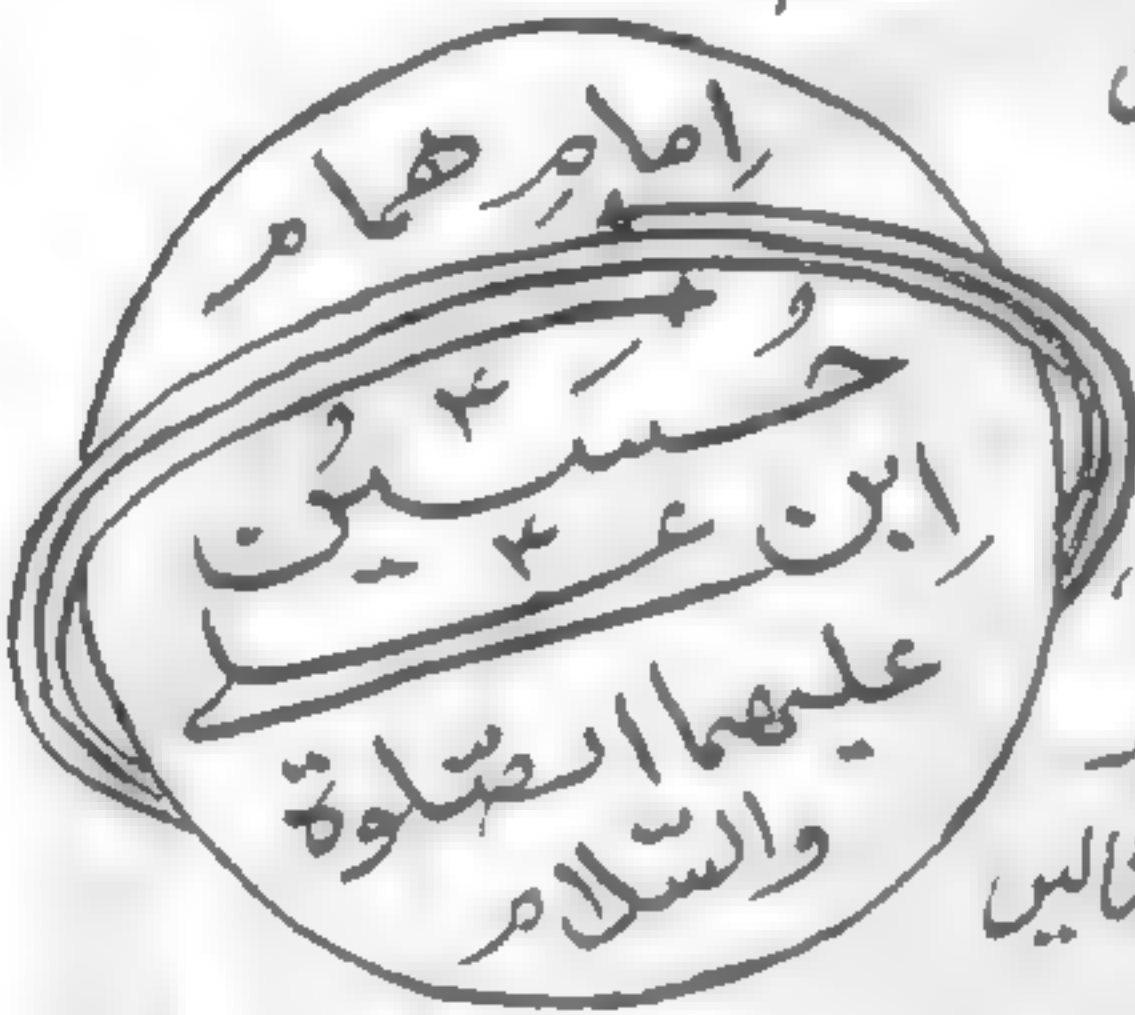 اِمامِ همام
حُسَیْنُ ؑ
اِبن علی ؑ
علیهما الصّلوة
والسّلام